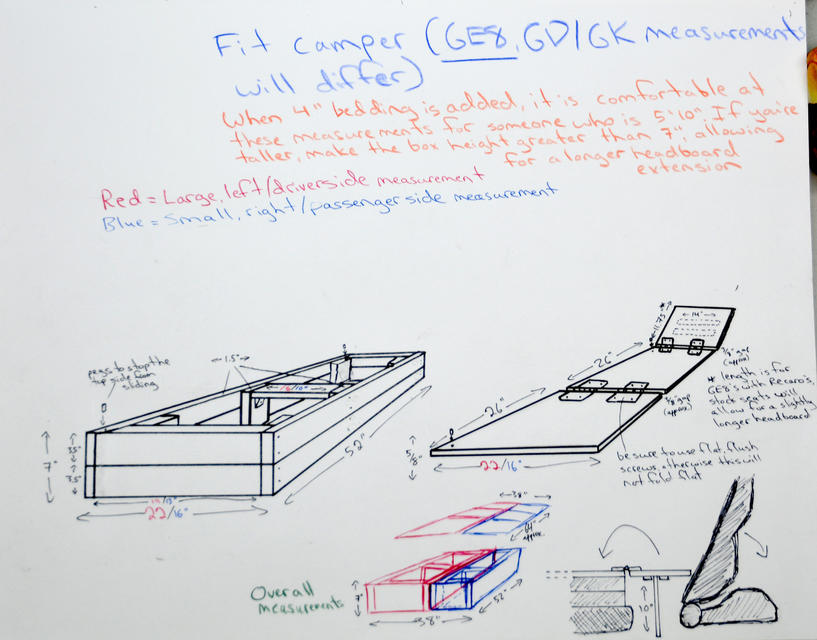 Fit camper (GE8, GD/GK measurements
will differ)
When 4" bedding is added, it is comfortable at
these measurements for someone who is 5'10". If you're
taller, make the box height greater than 7", allowing
for a longer headboard
extension
Red = Large, left/driverside measurement
Blue = Small, right/passenger side measurement
pegs to stop the
top side from
sliding
1.5"
16/10"
7"
3.5"
3.5"
19/13"
22/16"
52"
11.75"
14"
26"
26"
3/8" gap
(approx)
3/8" gap
(approx)
5/8"
22/16"
* length is for
GE8's with Recaro's,
stock seats will
allow for a slightly
longer headboard
be sure to use flat, flush
screws, otherwise this will
not fold flat
Overall
measurements
38"
64"
approx
7"
38"
52"
10"